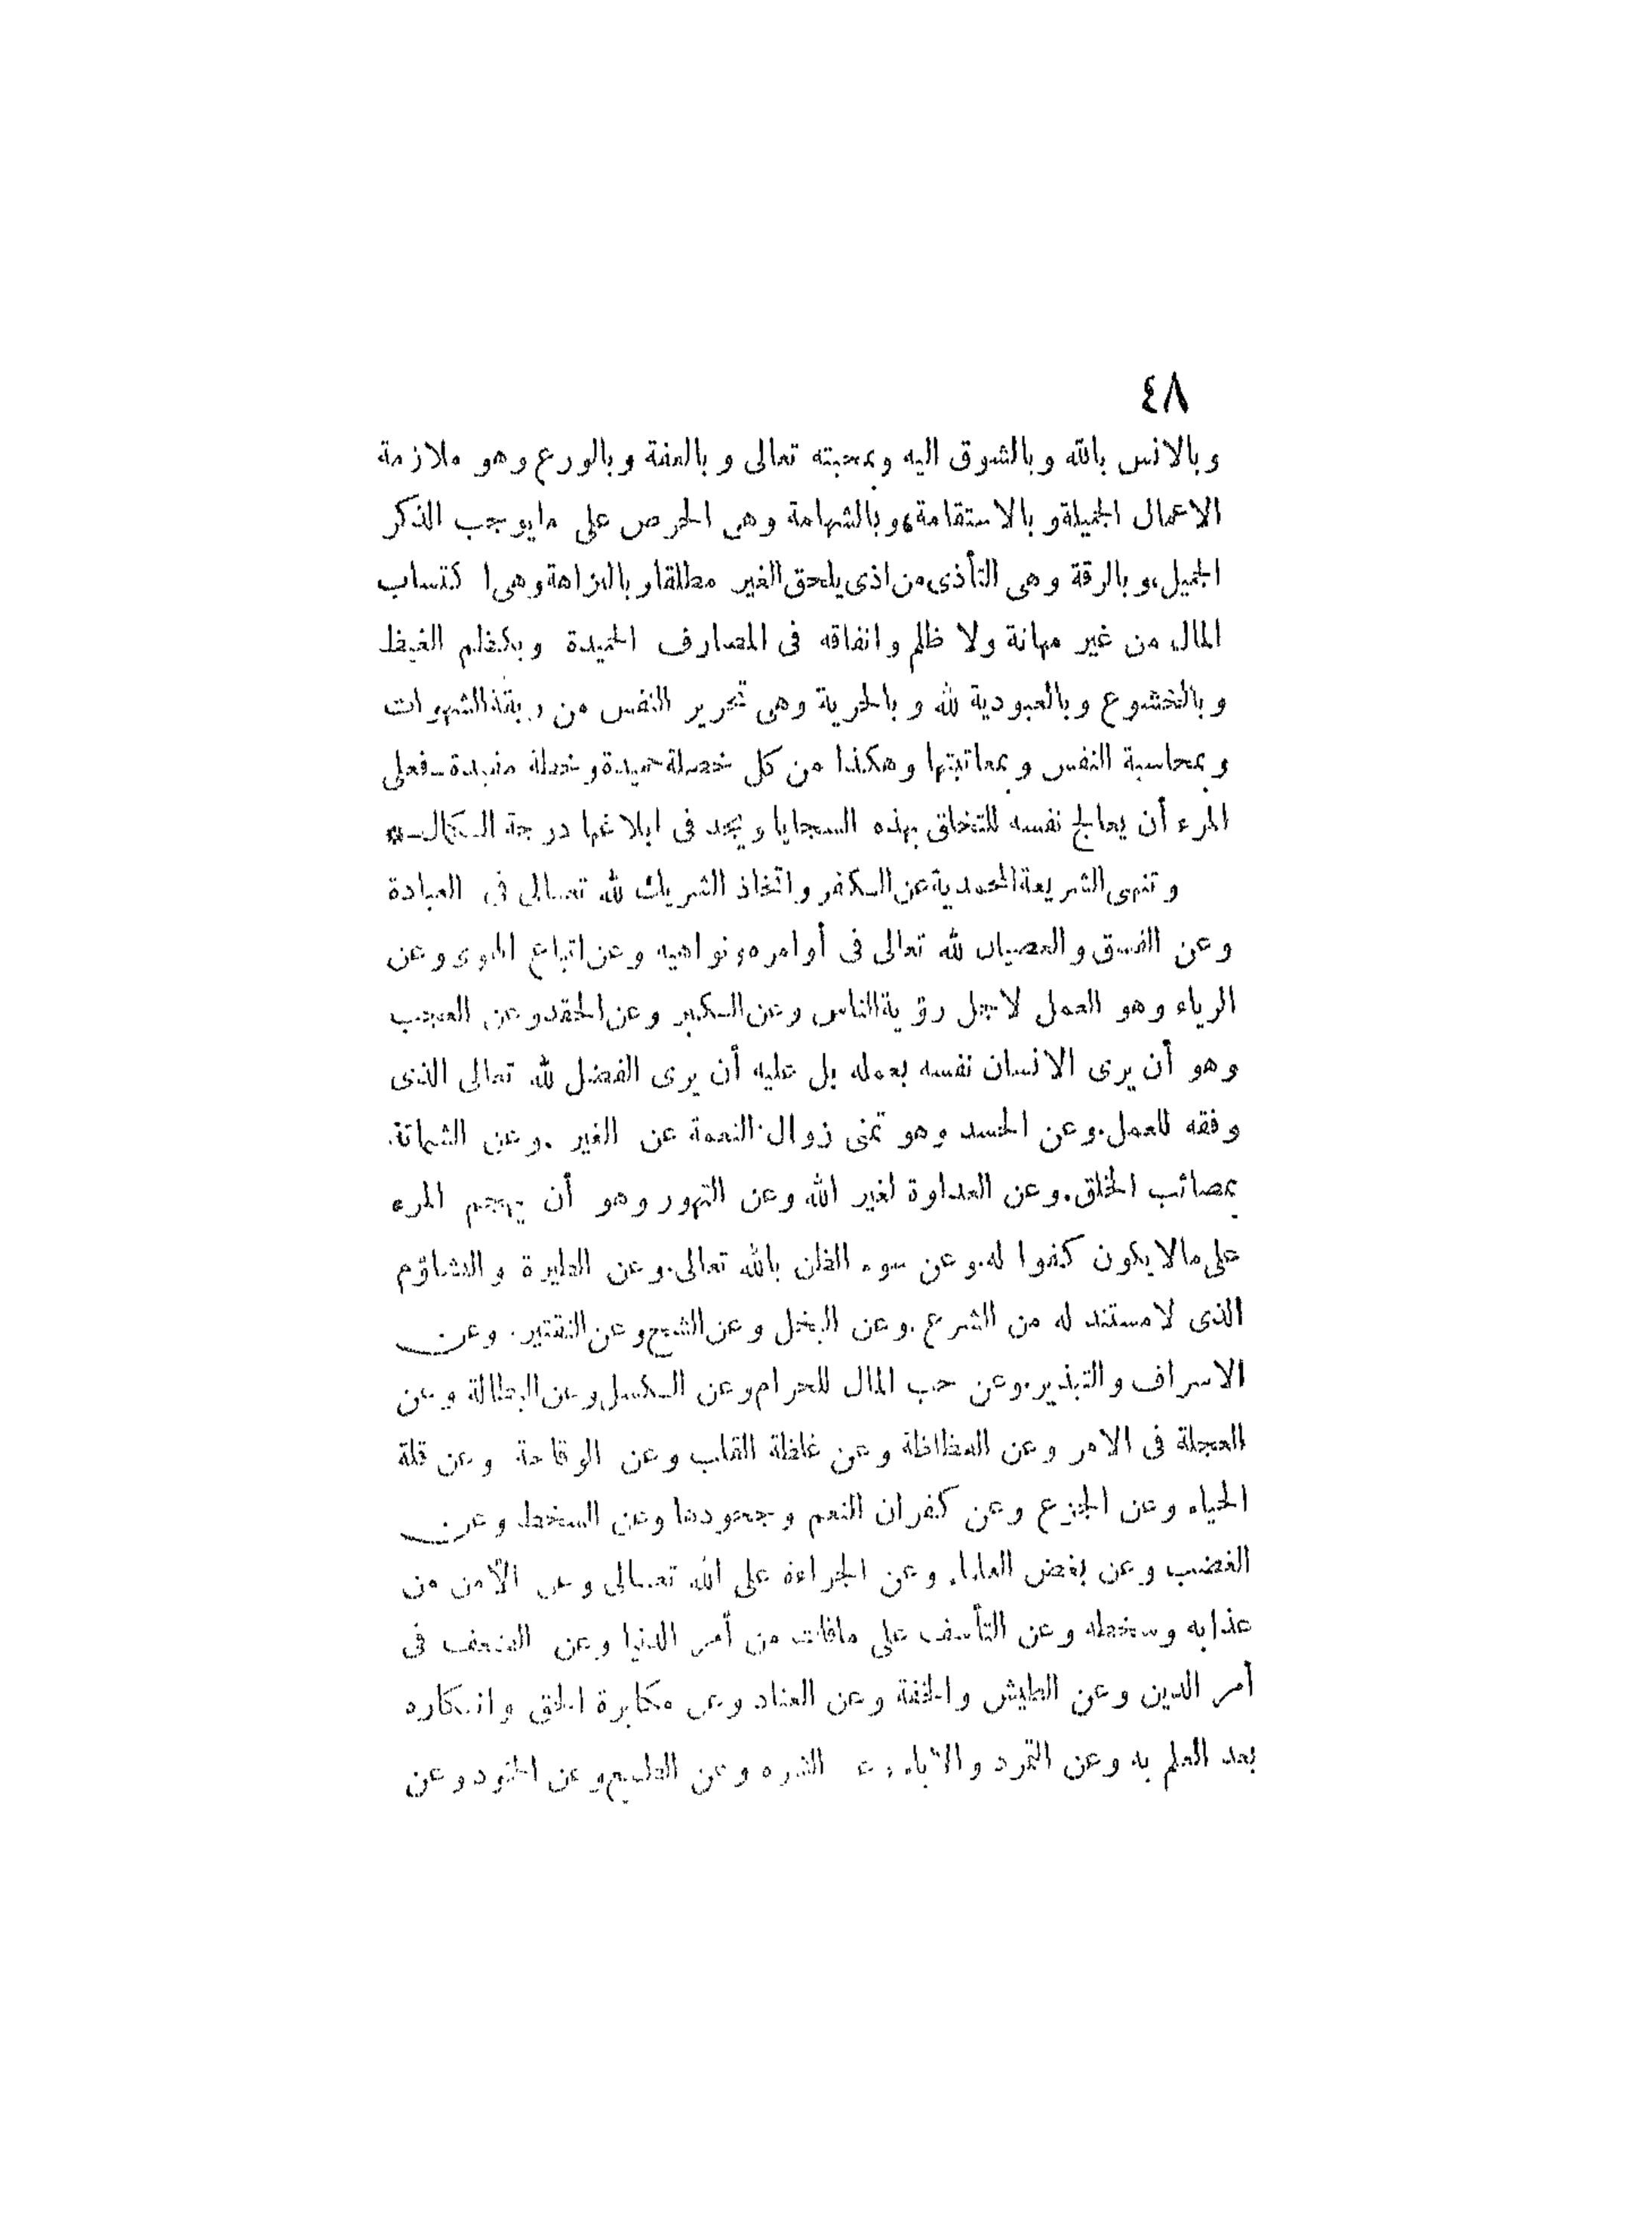 ٤٨
وبالانس بالله وبالشوق اليه وبمحبته تعالى وبالعفة وبالورع وهو ملازمة
الاعمال الجميلة وبالاستقامة، وبالشهامة وهى الحرص على ما يوجب الذكر
الجميل، وبالرقة وهى التأذى من اذى يلحق الغير مطلقا وبالنزاهة وهى اكتساب
المال من غير مهانة ولا ظلم وانفاقه فى المصارف الحميدة وبكظم الغيظ
وبالخشوع وبالعبودية لله وبالحرية وهى تحرير النفس من ربقة الشهوات
وبمحاسبة النفس وبمعاتبتها وهكذا من كل خصلة حميدة وخصلة مفيدة ـ فعلى
المرء أن يعالج نفسه للتخلق بهذه السجايا ويجد فى ابلاغها درجة الكمال ـ *
وتنهى الشريعة المحمدية عن الكفر واتخاذ الشريك لله تعالى فى العبادة
وعن الفسق والعصيان لله تعالى فى أوامره ونواهيه وعن اتباع الهوى وعن
الرياء وهو العمل لاجل رؤية الناس وعن الكبر وعن الحقد وعن العجب
وهو أن يرى الانسان نفسه بعمله بل عليه أن يرى الفضل لله تعالى الذى
وفقه للعمل. وعن الحسد وهو تمنى زوال النعمة عن الغير. وعن الشماتة
بمصائب الخلق. وعن العداوة لغير الله وعن التهور وهو أن يهجم المرء
على مالا يكون كفوا له. وعن سوء الظن بالله تعالى. وعن الطيرة والتشاؤم
الذى لا مستند له من الشرع. وعن البخل وعن الشح وعن التقتير. وعن
الاسراف والتبذير. وعن حب المال للحرام وعن الكسل وعن البطالة وعن
العجلة فى الامر وعن الفظاظة وعن غلظة القلب وعن الوقاحة وعن قلة
الحياء وعن الجزع وعن كفران النعم وجحودها وعن السخط وعن
الغضب وعن بغض العلماء وعن الجراءة على الله تعالى وعن الأمن من
عذابه وسخطه وعن التأسف على مافات من أمر الدنيا وعن الضعف فى
أمر الدين وعن الطيش والخفة وعن العناد وعن مكابرة الحق وانكاره
بعد العلم به وعن التمرد والاباء الشره وعن الطمع وعن الخمود وعن